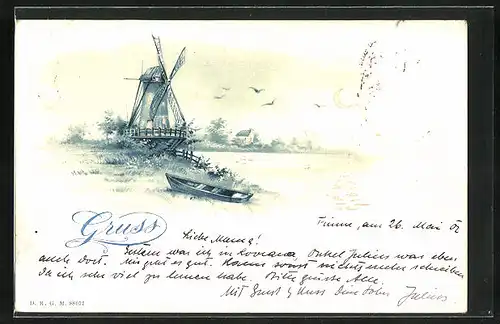 Gruss
Fiume, am 26. Mai
Liebe Mama!
Gestern war ich in Lovrana, Onkel Julius war eben
auch dort. Mir geht es gut. Kann sonst nichts mehr schreiben
da ich sehr viel zu lernen habe. Bitte grüsse Alle.
Mit Gruss & Kuss Dein Sohn Julius
D. R. G. M. 88077